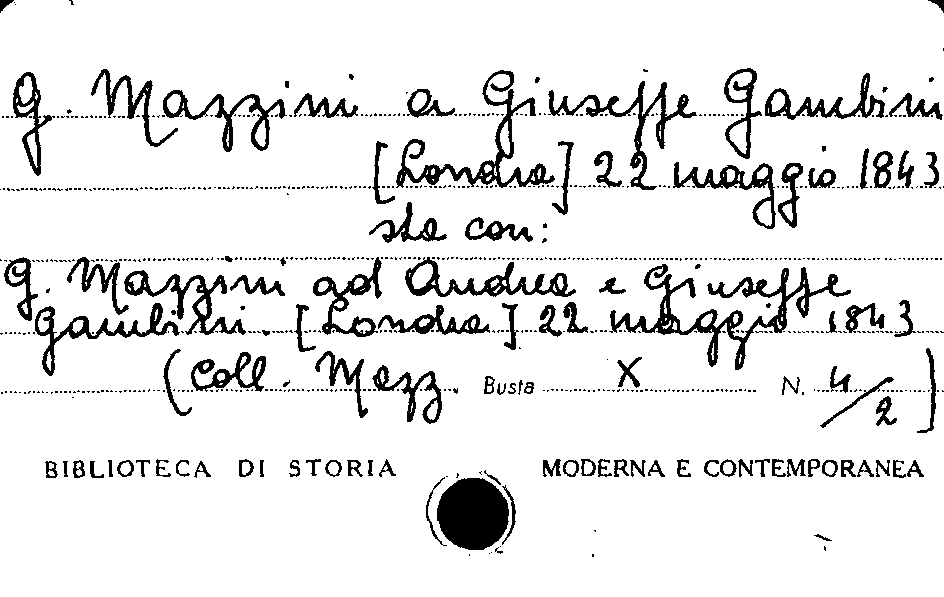 G. Mazzini a Giuseppe Gambini
[Londra] 22 maggio 1843
sta con:
G. Mazzini ad Andrea e Giuseppe
Gambini. [Londra] 22 maggio 1843
(Coll. Mazz. Busta X N. 4/2)
BIBLIOTECA DI STORIA MODERNA E CONTEMPORANEA